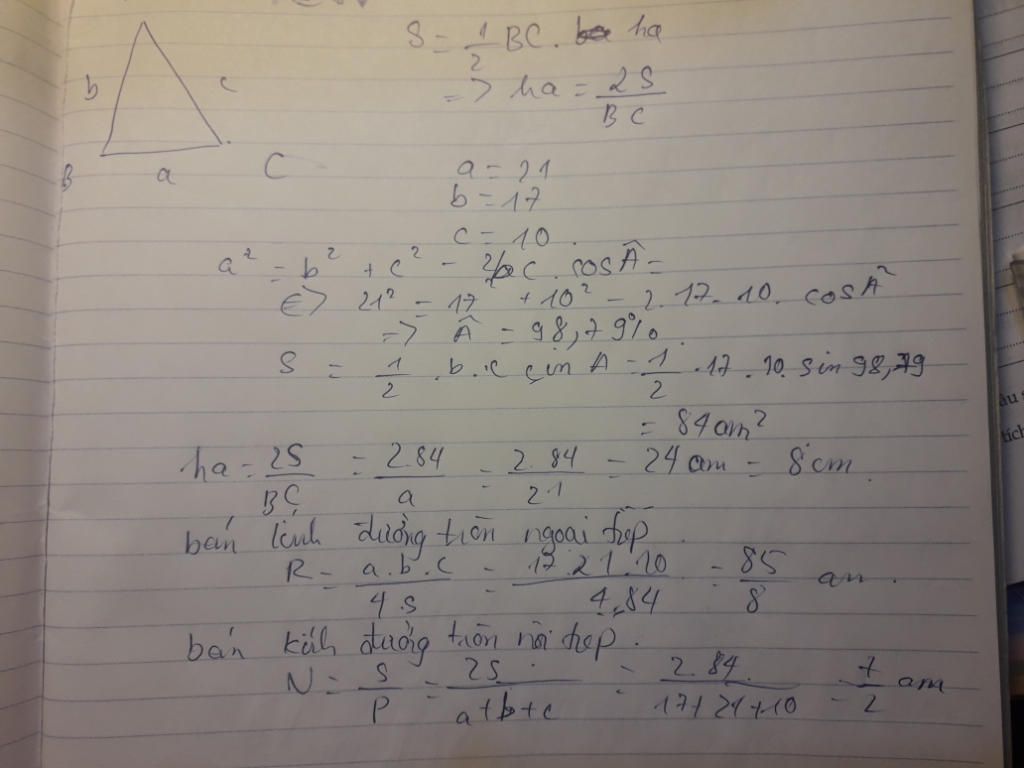 S = 1/2 BC . ha
=> ha = 2S/BC
b c
B a C
a = 21
b = 17
c = 10 .
a² = b² + c² - 2bc . cos Â =
<=> 21² = 17 + 10² - 2.17.10. cos Â
=> Â = 98,79%.
S = 1/2 . b . c sin A = 1/2 . 17 . 10. sin 98,79
= 84 cm²
ha = 2S/BC = 2.84/a = 2.84/21 = 24 cm = 8 cm.
bán kính đường tròn ngoại tiếp .
R = a.b.c/4.S = 17.21.10/4.84 = 85/8 cm .
bán kính đường tròn nội tiếp .
N = S/P = 2S/a+b+c = 2.84/17+21+10 = 7/2 cm